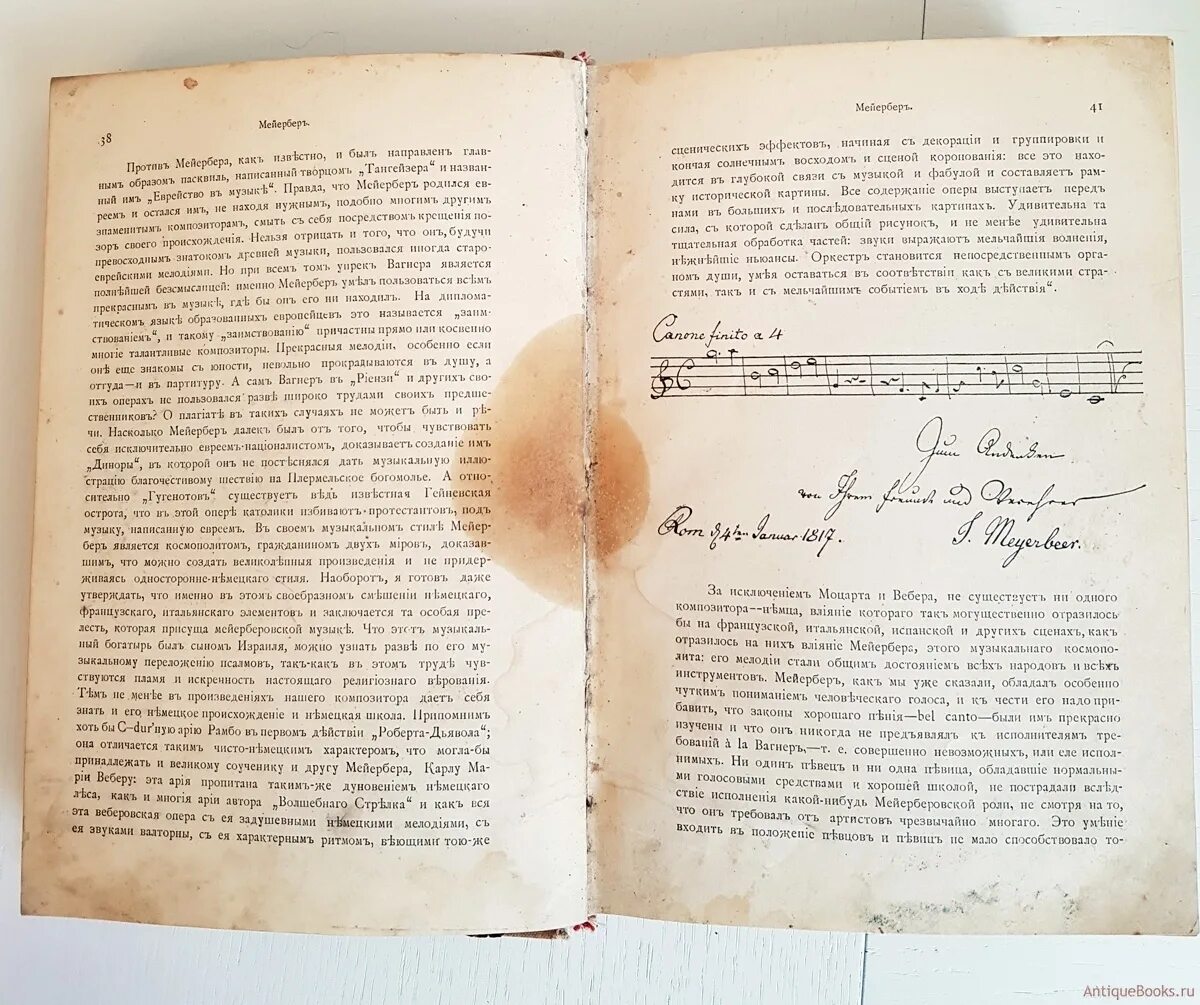 38
Мейерберъ.
Противъ Мейербера, какъ извѣстно, и былъ направленъ глав-
нымъ образомъ пасквиль, написанный творцомъ „Тангейзера“ и назван-
ный имъ „Еврейство въ музыкѣ“. Правда, что Мейерберъ родился ев-
реемъ и остался имъ, не находя нужнымъ, подобно многимъ другимъ
знаменитымъ композиторамъ, смыть съ себя посредствомъ крещенія по-
зоръ своего происхожденія. Нельзя отрицать и того, что онъ, будучи
превосходнымъ знатокомъ древней музыки, пользовался иногда старо-
еврейскими мелодіями. Но при всемъ томъ упрекъ Вагнера является
полнѣйшей безсмыслицей: именно Мейерберъ умѣлъ пользоваться всѣмъ
прекраснымъ въ музыкѣ, гдѣ бы онъ его ни находилъ. На диплома-
тическомъ языкѣ образованныхъ европейцевъ это называется „заим-
ствованіемъ“, и такому „заимствованію“ причастны прямо или косвенно
многіе талантливые композиторы. Прекрасныя мелодіи, особенно если
онѣ еще знакомы съ юности, невольно прокрадываются въ душу, а
оттуда—и въ партитуру. А самъ Вагнеръ въ „Ріензи“ и другихъ сво-
ихъ операхъ не пользовался развѣ широко трудами своихъ предше-
ственниковъ? О плагіатѣ въ такихъ случаяхъ не можетъ быть и рѣ-
чи. Насколько Мейерберъ далекъ былъ отъ того, чтобы чувствовать
себя исключительно евреемъ-націоналистомъ, доказываетъ созданіе имъ
„Диноры“, въ которой онъ не постѣснялся дать музыкальную иллю-
страцію благочестивому шествію на Плермельское богомолье. А отно-
сительно „Гугенотовъ“ существуетъ вѣдь извѣстная Гейневская
острота, что въ этой оперѣ католики избиваютъ протестантовъ, подъ
музыку, написанную евреемъ. Въ своемъ музыкальномъ стилѣ Мейер-
беръ является космополитомъ, гражданиномъ двухъ міровъ, доказав-
шимъ, что можно создать великолѣпныя произведенія и не придер-
живаясь односторонне-нѣмецкаго стиля. Наоборотъ, я готовъ даже
утверждать, что именно въ этомъ своеобразномъ смѣшеніи нѣмецкаго,
французскаго, итальянскаго элементовъ и заключается та особая пре-
лесть, которая присуща мейерберовской музыкѣ. Что этотъ музыкаль-
ный богатырь былъ сыномъ Израиля, можно узнать развѣ по его му-
зыкальному переложенію псалмовъ, такъ-какъ въ этомъ трудѣ чув-
ствуются пламя и искренность настоящаго религіознаго вѣрованія.
Тѣмъ не менѣе въ произведеніяхъ нашего композитора даетъ себя
знать и его нѣмецкое происхожденіе и нѣмецкая школа. Припомнимъ
хоть бы C-dur'ную арію Рамбо въ первомъ дѣйствіи „Роберта-Дьявола“;
она отличается такимъ чисто-нѣмецкимъ характеромъ, что могла-бы
принадлежать и великому соученику и другу Мейербера, Карлу Ма-
ріи Веберу: эта арія пропитана такимъ-же дуновеніемъ нѣмецкаго
лѣса, какъ и многія аріи автора „Волшебнаго Стрѣлка“ и какъ вся
эта веберовская опера съ ея задушевными нѣмецкими мелодіями, съ
ея звуками валторны, съ ея характернымъ ритмомъ, вѣющими тою-же
Мейерберъ.
41
сценическихъ эффектовъ, начиная съ декорацій и группировки и
кончая солнечнымъ восходомъ и сценой коронованія: все это нахо-
дится въ глубокой связи съ музыкой и фабулой и составляетъ рам-
ку исторической картины. Все содержаніе оперы выступаетъ передъ
нами въ большихъ и послѣдовательныхъ картинахъ. Удивительна та
сила, съ которой сдѣланъ общій рисунокъ, и не менѣе удивительна
тщательная обработка частей: звуки выражаютъ мельчайшія волненія,
нѣжнѣйшіе ньюансы. Оркестръ становится непосредственнымъ орга-
номъ души, умѣя оставаться въ соотвѣтствіи какъ съ великими стра-
стями, такъ и съ мельчайшимъ событіемъ въ ходѣ дѣйствія“.
Canone finito a 4
Zum Andenken
von Ihrem Freunde und Verehrer
Rom d 4ten Januar 1817.
J. Meyerbeer.
За исключеніемъ Моцарта и Вебера, не существуетъ ни одного
композитора—нѣмца, вліяніе котораго такъ могущественно отразилось
бы на французской, итальянской, испанской и другихъ сценахъ, какъ
отразилось на нихъ вліяніе Мейербера, этого музыкальнаго космопо-
лита: его мелодіи стали общимъ достояніемъ всѣхъ народовъ и всѣхъ
инструментовъ. Мейерберъ, какъ мы уже сказали, обладалъ особенно
чуткимъ пониманіемъ человѣческаго голоса, и къ чести его надо при-
бавить, что законы хорошаго пѣнія—bel canto—были имъ прекрасно
изучены и что онъ никогда не предъявлялъ къ исполнителямъ тре-
бованій à la Вагнеръ,—т. е. совершенно невозможныхъ, или еле испол-
нимыхъ. Ни одинъ пѣвецъ и ни одна пѣвица, обладавшіе нормальны-
ми голосовыми средствами и хорошей школой, не пострадали вслѣд-
ствіе исполненія какой-нибудь Мейерберовской роли, не смотря на то,
что онъ требовалъ отъ артистовъ чрезвычайно многаго. Это умѣніе
входить въ положеніе пѣвцовъ и пѣвицъ не мало способствовало то-
AntiqueBooks.ru